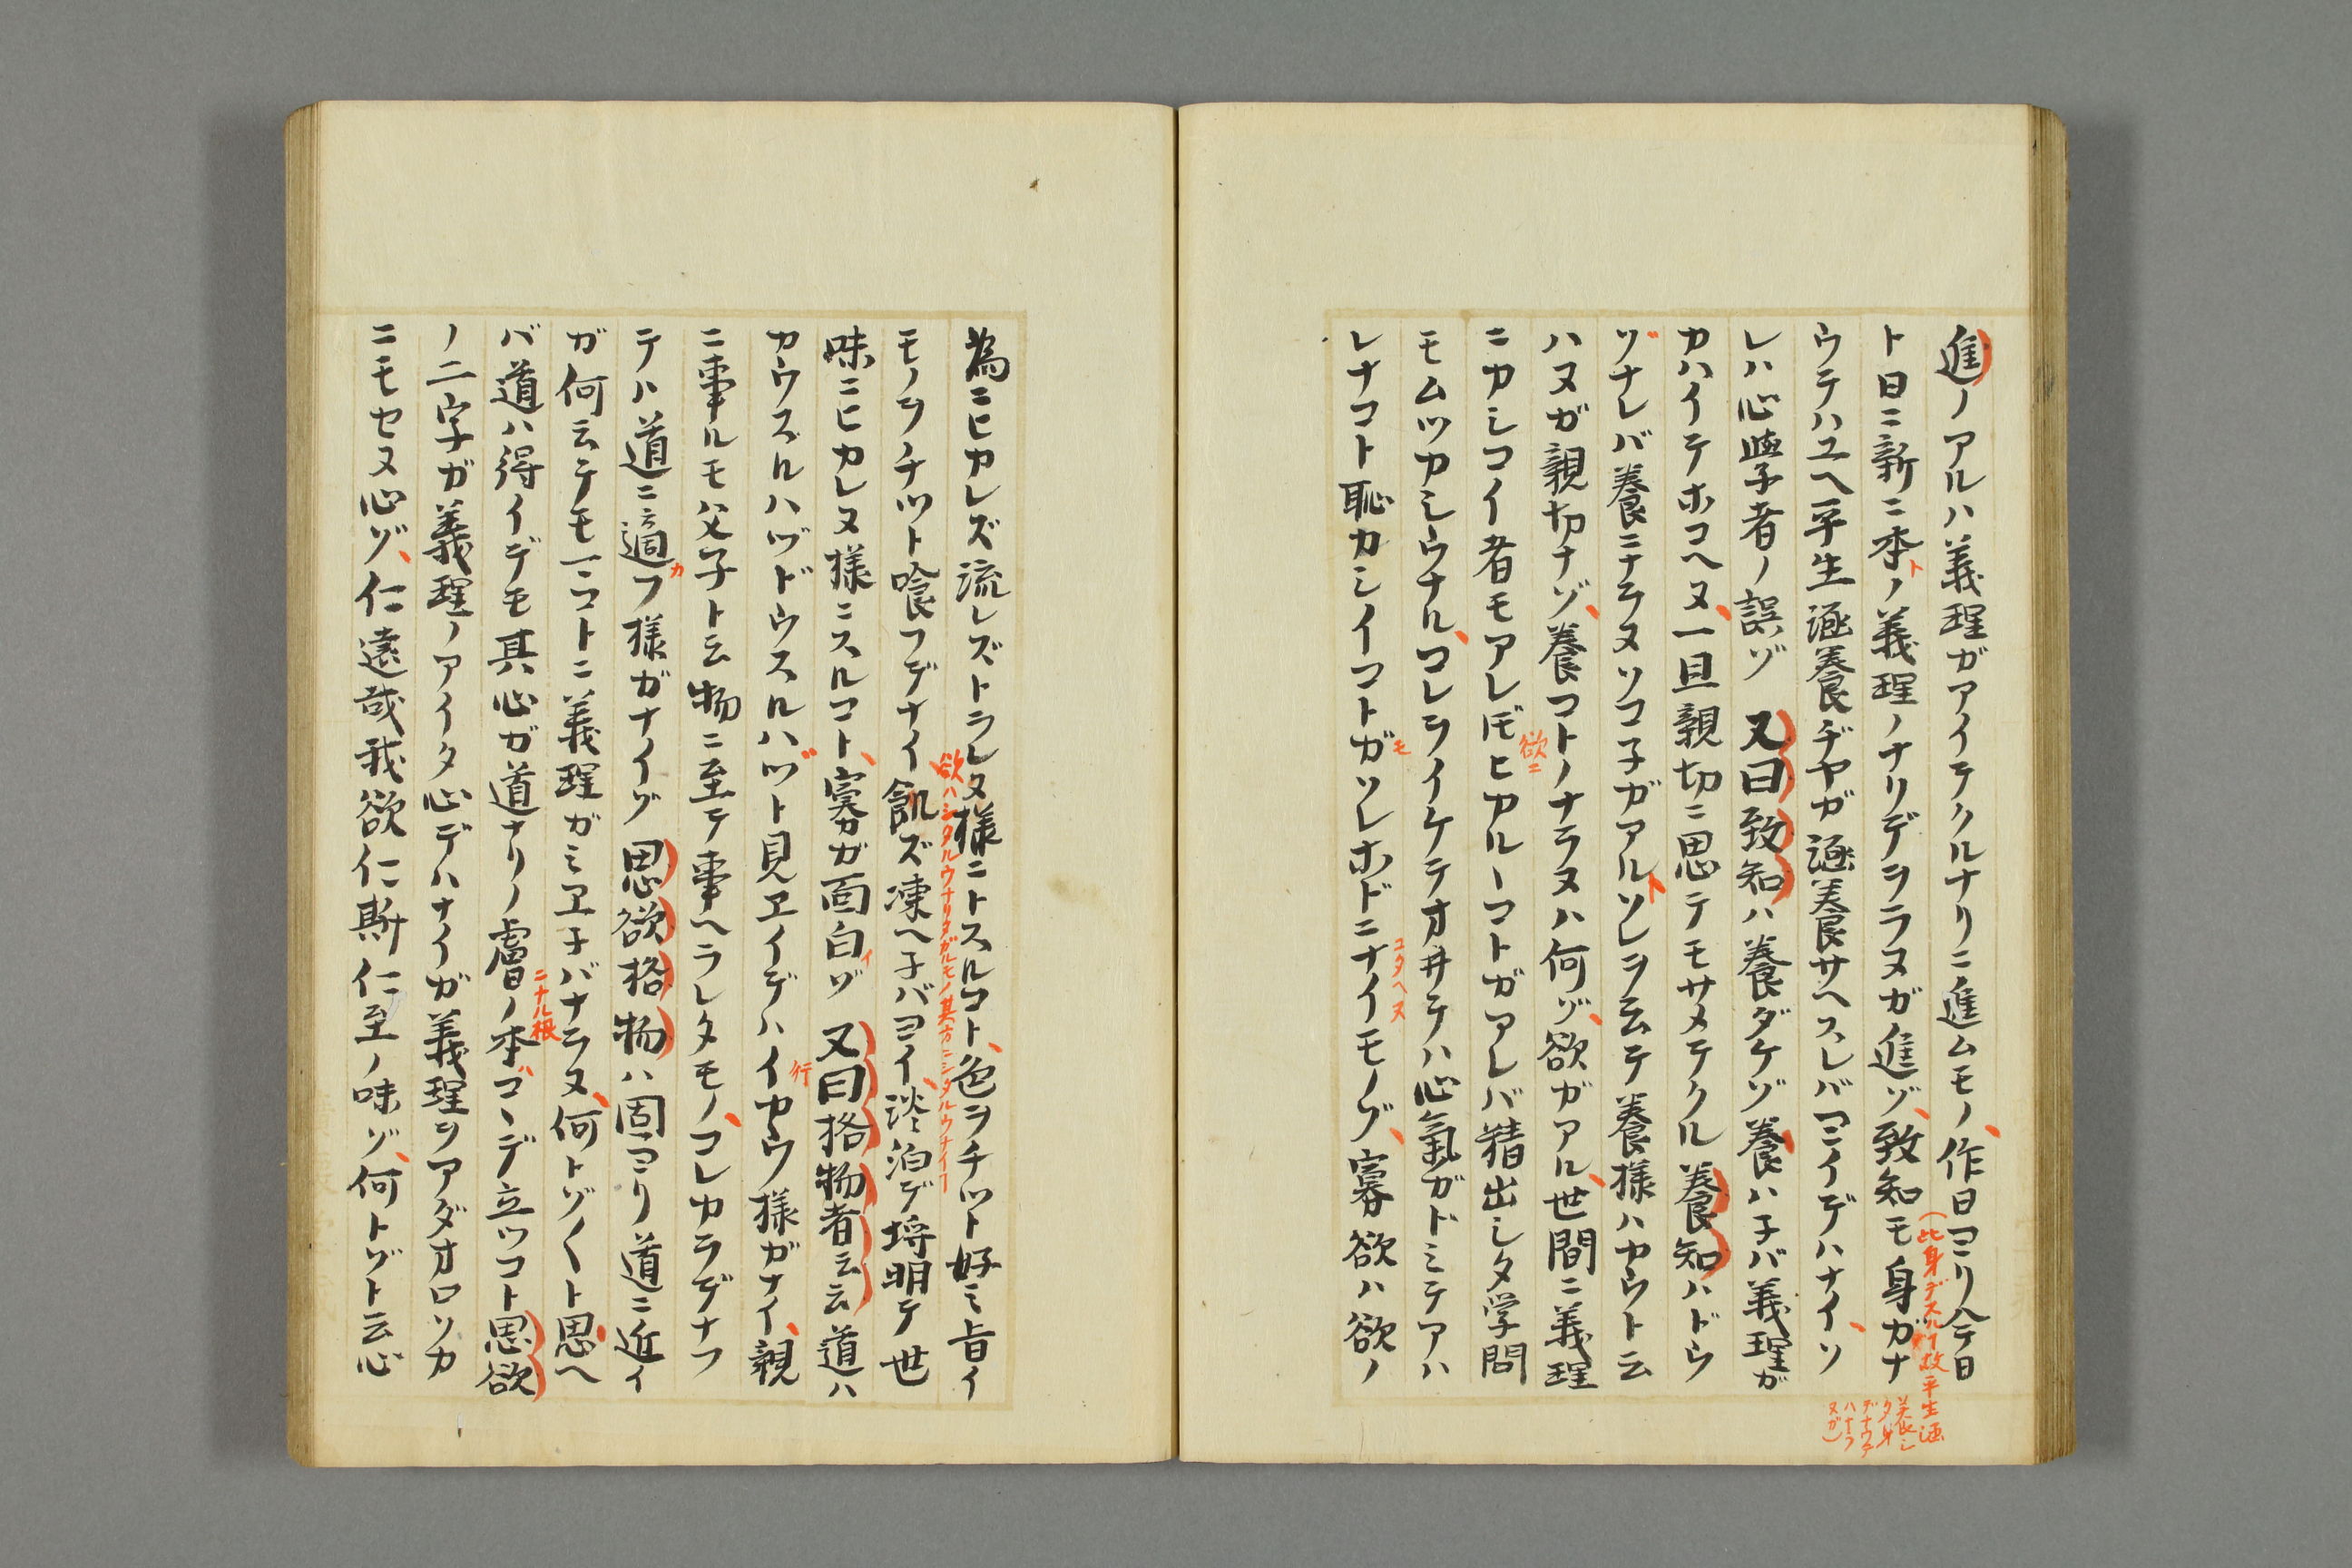 進ノアルハ義理ガアイテクルナリニ進ムモノ、作日ヨリ今日
ト日ニ新ニ本ノ義理ノナリデヲラヌガ進ゾ、致知モ身ガナ
ト
(此身デスルイ故平生涵
養シ
タ身
デナウテ
ハナラ
ヌガ)
ウテハユヘ平生涵養ヂヤガ涵養サヘスレバヨイデハナイ、ソ
レハ心學者ノ誤ゾ 又曰致知ハ養ダケゾ養ハ子バ義理ガ
カハイテホコヘヌ、一旦親切ニ思テモサメテクル養知ハドウ
ゾナレバ養ニナラヌソコ子ガアルトソレヲ云テ養様ハヤウト云
ハヌガ親切ナゾ、養コトノナラヌハ何ゾ、欲ガアル、世間ニ義理
ニカシコイ者モアレ𪜈ヒカルヽコトガアレバ精出シタ学問
欲ニ
モムツカシウナル、コレヲイケテオ井テハ心氣ガドミテアハ
レナコト恥カシイコトガソレホドニナイモノゾ、寡欲ハ欲ノ
モ
コタヘヌ
為ニヒカレズ流レズトラレヌ様ニトスルコト、色ヲチツト好ミ旨イ
モノヲチツト喰フデナイ飢ズ凍ヘ子バヨイ、淡泊デ埒明テ世
欲ハシタルウナリタガルモノ其方ニシタルウナイコ
味ニヒカレヌ様ニスルコト、寡ガ面白イゾ 又曰格物者云云道ハ
カウスルハヅドウスルハヅト見ヱイデハイヤウ様ガナイ、親
行
ニ事ルモ父子ト云物ニ至テ事ヘラレタモノ、コレカラデナフ
テハ道ニ適フ様ガナイゾ 思欲格物ハ固ヨリ道ニ近イ
カ
ガ何云テモ一コトニ義理ガミヱ子バナラヌ、何トゾ〱ト思ヘ
バ道ハ得イデモ其心ガ道ナリノ膚ノ本コヽデ立ツコト思欲
ニナル根
ハ
ノ二字ガ義理ノアイタ心デハナイガ義理ヲアダオロソカ
ニモセヌ心ゾ、仁遠哉我欲仁斯仁至ノ味ゾ、何トゾト云心